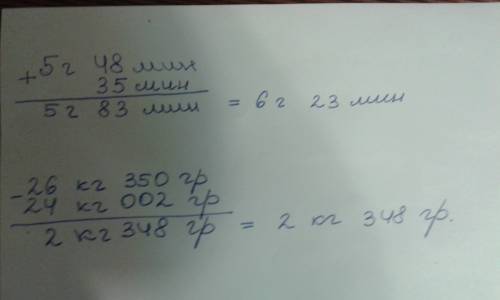 + 5 г 48 мин
35 мин
5 г 83 мин = 6 г 23 мин
- 26 кг 350 гр
24 кг 002 гр
2 кг 348 гр = 2 кг 348 гр.